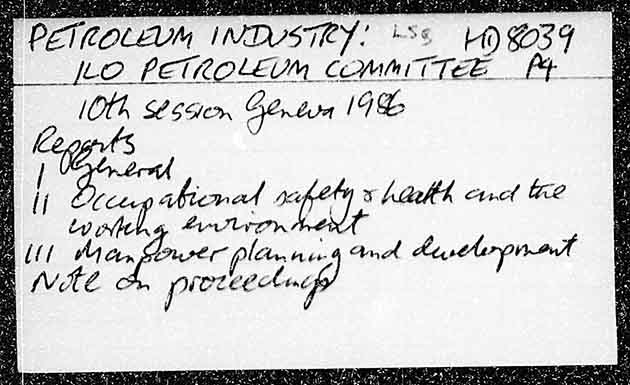 PETROLEUM INDUSTRY: LSB HD8039
ILO PETROLEUM COMMITTEE P4
10th session Geneva 1986
Reports
I General
II Occupational safety & health and the
working environment
III Manpower planning and development
Note on proceedings